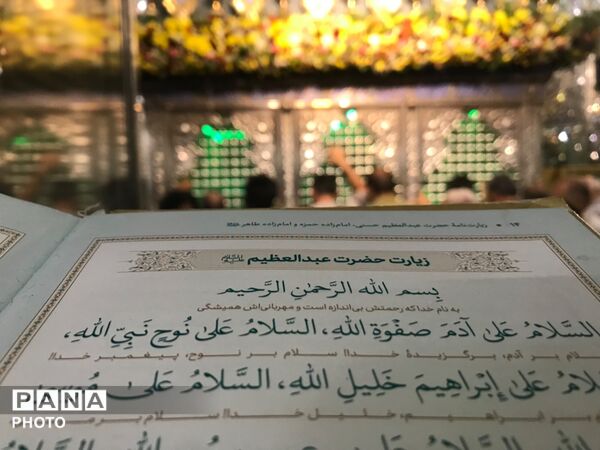 ۱۴ • زیارت‌نامهٔ حضرت عبدالعظیم حسنی، امام‌زاده حمزه و امام‌زاده طاهر
زیارت حضرت عبدالعظیم
بِسمِ اللهِ الرَّحمٰنِ الرَّحیمِ
به نام خدا که رحمتش بی‌اندازه است و مهربانی‌اش همیشگی
اَلسَّلامُ عَلیٰ آدَمَ صَفْوَةِ اللهِ، اَلسَّلامُ عَلیٰ نُوحٍ نَبِیِّ اللهِ،
سلام بر آدم، برگزیدهٔ خدا! سلام بر نوح، پیغمبر خدا!
اَلسَّلامُ عَلیٰ إِبْراهِیمَ خَلِیلِ اللهِ، اَلسَّلامُ عَلیٰ
سلام بر ابراهیم، خلیل خدا! سلام بر
PANA
PHOTO